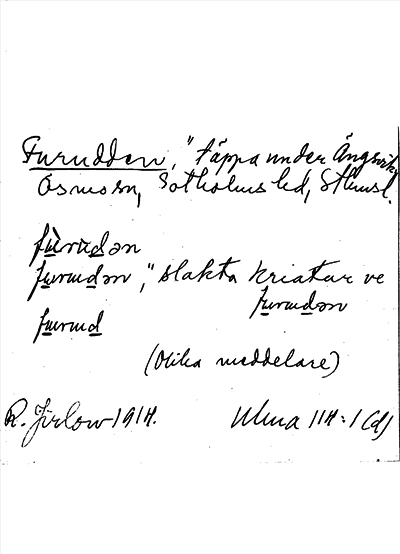 Furudden, "täppa under Ängsvik,
Ösmo sn, Sotholms hd, Sthmsl.
fùrudən
furudən, "slakta kriatur ve
furudən
furud
(Olika meddelare)
R. Jirlow 1914. Ulma 114:1 (d)